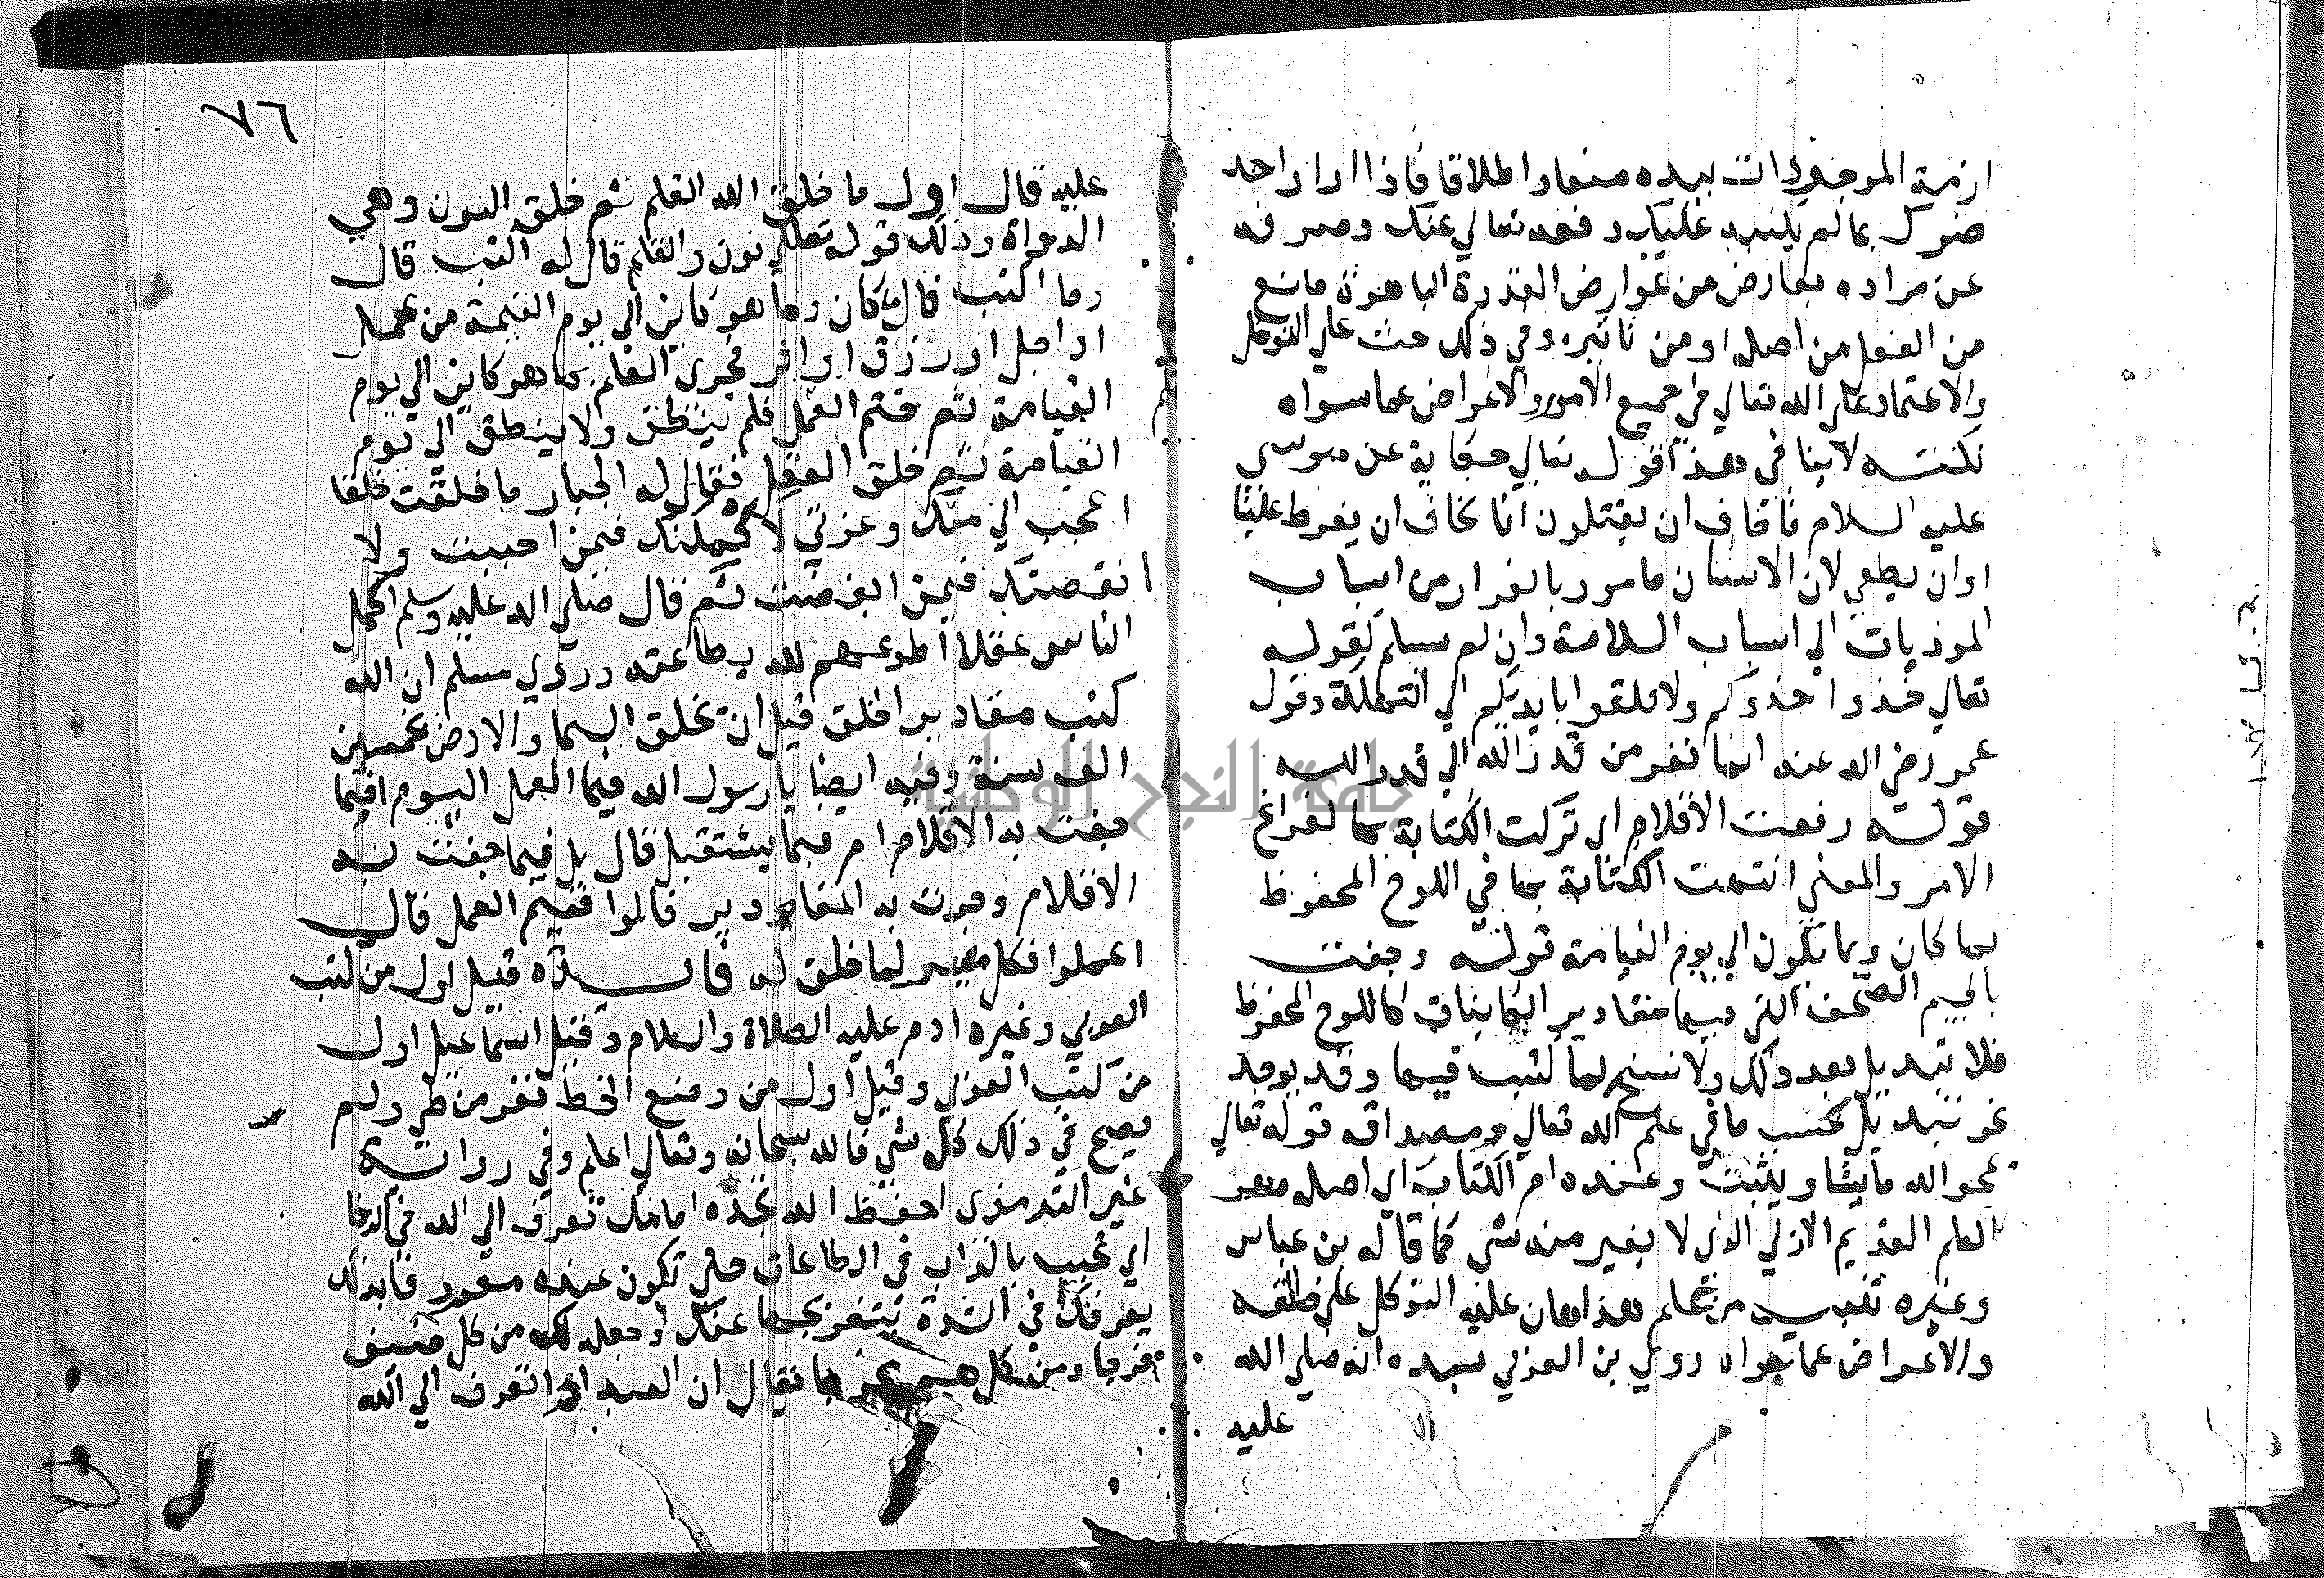 ازمة الموجودات بيده منعا واطلاقا فاذا اراد احد
ضرك بما لم يكتبه عليك دفعه تعالي عنك وصرفه
عن مراده بعارض من عوارض القدرة الباهرة مانع
من الفعل من اصله او من تاثيره وفي ذلك حث علي التوكل
والاعتماد علي الله تعالي في جميع الامور والاعراض عما سواه
نكتته لا ينافي هذا قوله تعالي حكاية عن موسي
عليه السلام فاخاف ان يقتلون اننا نخاف ان يفرط علينا
اوان يطغي لان الانسان مامور بالفرار من اسباب
الموذيات الي اسباب السلامة وان لم يسلم لقوله
تعالي خذوا حذركم ولا تلقوا بايديكم الي التهلكة وقول
عمر رضي الله عنه انما نفر من قدر الله الي قدر الله
قولته رفعت الاقلام اي تركت الكتابة بها لفراغ
الامر والمعني انتهت الكتابة بها في اللوح المحفوظ
بما كان وبما يكون الي يوم القيامة قولته وجفت
بالجيم الصحف التي فيها مقادير الكاينات كاللوح المحفوظ
فلا تبديل بعد ذلك ولا نسخ لما كتب فيها وقد يوجد
نحو تبديل بحسب ما في علم الله تعالي ومصداقه قوله تعالي
يمحوا الله ما يشا ويثبت وعنده ام الكتاب اي اصله وهو
العلم القديم الازلي الذي لا يغير منه شي كما قاله بن عباس
وغيره تنبيه من علم هذا هان عليه التوكل علي خالقه
والاعراض عما سواه روي بن العربي بسنده انه صلي الله
عليه
٧٦
عليه قال اول ما خلق الله القلم ثم خلق النون وهي
الدواة وذلك قوله تعالي نون والقلم قال له اكتب قال
وما اكتب قال ما كان وما هو كاين الي يوم القيمة من عمل
او اجل او رزق او اثر فجري القلم بما هو كاين الي يوم
القيامة ثم ختم العمل فلم ينطق ولا ينطق الي يوم
القيامة ثم خلق العقل فقال له الجبار ما خلقت خلقا
اعجب الي منك وعزتي لاكملنك فيمن احببت ولا
نقصتك فيمن ابغضت ثم قال صلي الله عليه وسلم اكمل
الناس عقلا اطوعهم لله بطاعته وروي مسلم ان الله
كتب مقادير الخلق قبل ان تخلق السما والارض بخمسين
الف سنة وفيه ايضا يا رسول الله فيما العمل اليوم افيما
جفت به الاقلام ام فيما يستقبل قال بل فيما جفت به
الاقلام وجرت به المقادير قالوا ففيم العمل قال
اعملوا فكل ميسر لما خلق له فايدة قيل اول من كتب
العربي وغيره ادم عليه الصلاة والسلام وقيل اسماعيل اول
من كتب العربي وقيل اول من وضع الخط نفر من طي ولم
يصح في ذلك كل شي فالله سبحانه وتعالي اعلم وفي رواية
غير الترمذي احفظ الله تجده امامك تعرف الي الله في الرخا
اي تحبب بالداب في الطاعات حتي تكون عنده معروفا بذلك
يعرفك في الشدة بتفريجها عنك وجعله لك من كل ضيق
فرجا ومن كل هم مخرجا فيقال ان العبد اذا تعرف الي الله